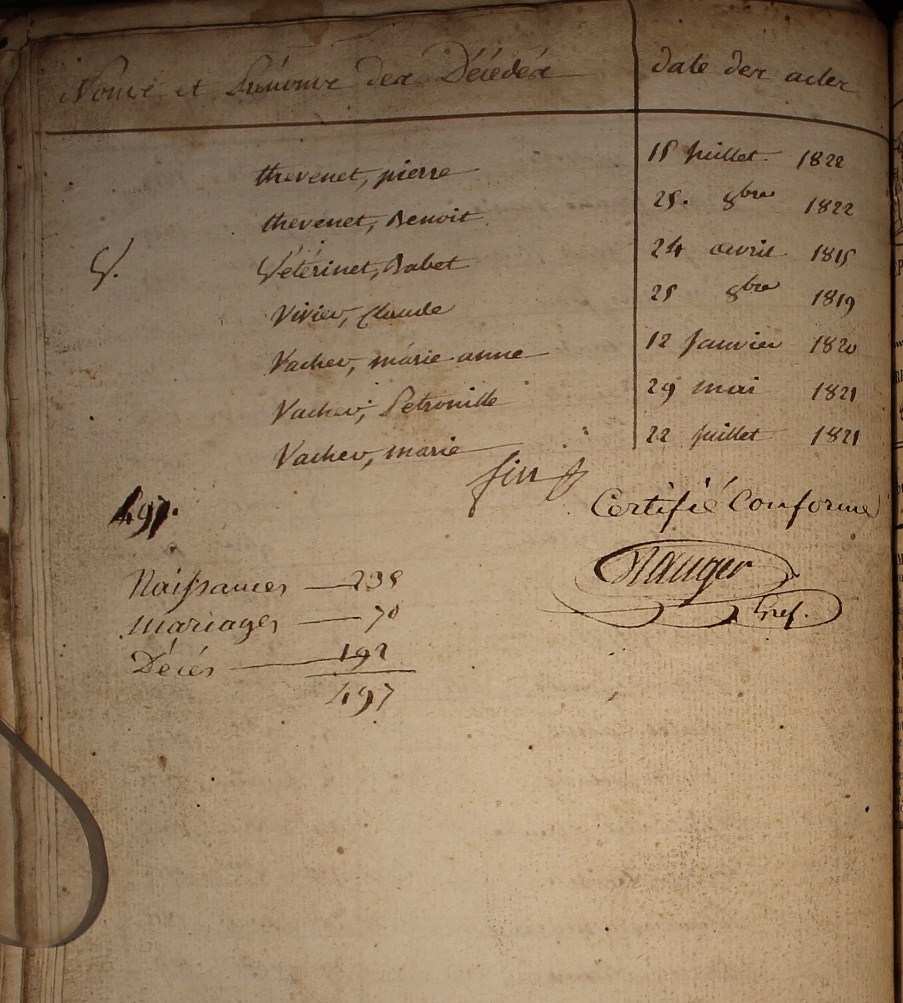 Noms et Prénoms des Décédés date des actes
thevenet, pierre 15 juillet 1822
thevenet, Benoit 25. 8bre 1822
V. Vétérinet, Babet 24 avril 1815
Vivier, Claude 25 8bre 1819
Vacher, marie anne 12 Janvier 1820
Vacher, Petronille 29 mai 1821
Vacher, marie 22 juillet 1821
fin
497. Certifié Conforme
Naissances — 235
mariages — 70
Gref.
Décés — 192
497